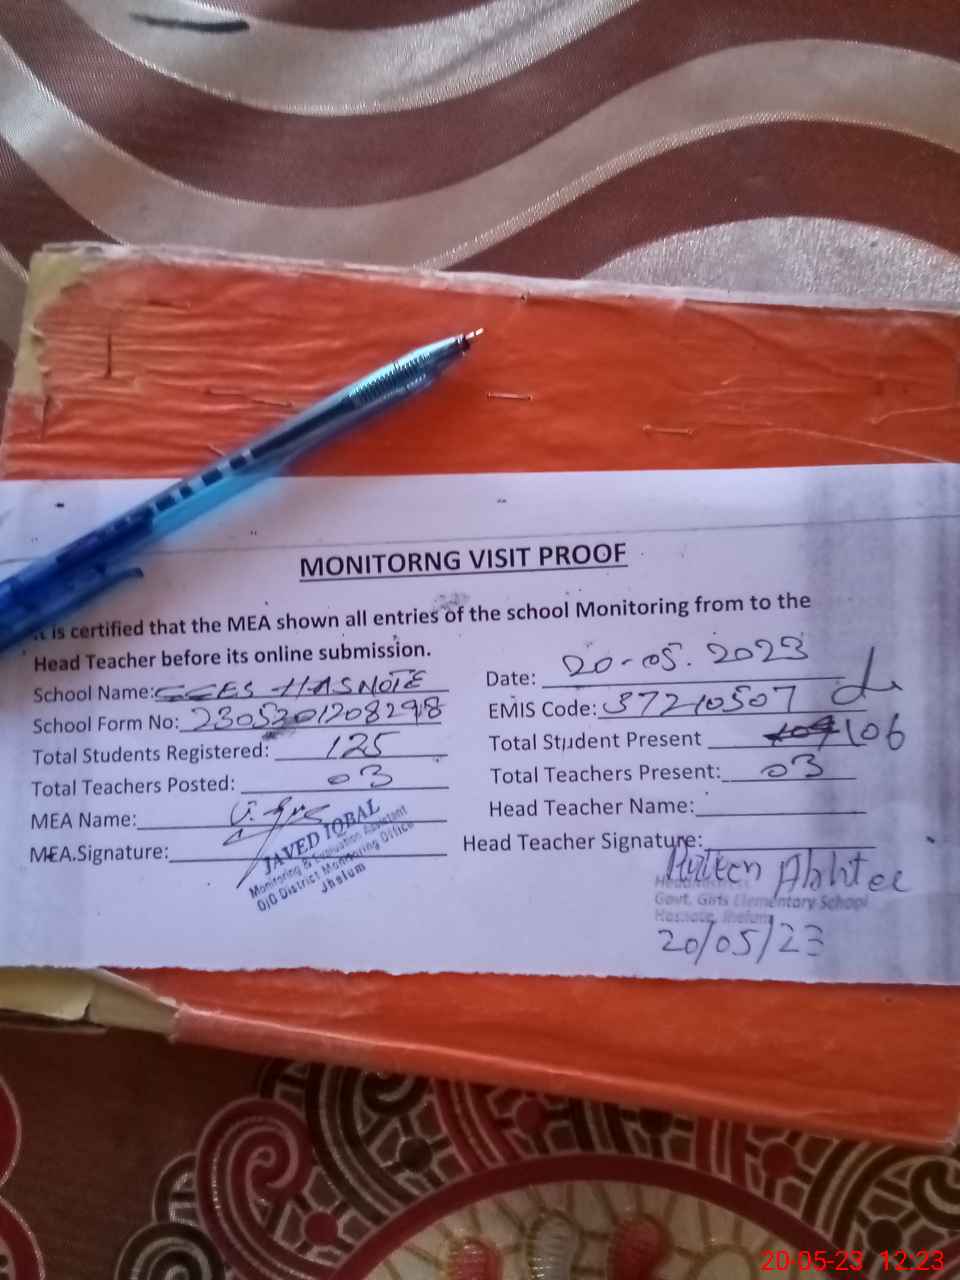 MONITORNG VISIT PROOF
It is certified that the MEA shown all entries of the school Monitoring from to the
Head Teacher before its online submission.
School Name: GGES HASNOTE
Date: 20-05.2023
School Form No:
EMIS Code: 37210507
Total Students Registered: 125
Total Student Present 106
Total Teachers Posted: 03
Total Teachers Present: 03
MEA Name:
Head Teacher Name:
MEA.Signature:
Head Teacher Signature:
JAVED IQBAL
Monitoring & Evaluation Assistant
O/O District Monitoring Office
Jhelum
Govt. Girls Elementary School
Hasnote, Jhelum
20/05/23
20-05-23 12.23